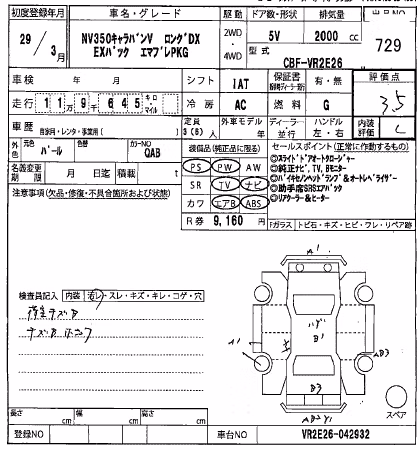 初度登録年月 車名・グレード 駆動 ドア数・形状 排気量 出品NO
29 / 3月 NV350キャラバンV ロングDX 2WD・4WD 5V 2000 cc 729
EXパック エマブレPKG 型式 CBF-VR2E26
車検 年 月 シフト IAT 保証書 有・無 評価点 3.5
走行 11万9千645 キロ・マイル 冷房 AC 燃料 G
車歴 自家用・レンタ・事業用( ) 定員 3(6)人 外車モデル 年 ディーラー・並行 ハンドル 左・右 内装評価 C
外色 元色 パール 色替 カラーNO QAB 装備品(純正品に限る) セールスポイント(正常に作動するもの)
名義変更期限 月 日迄 積載 t PS PW AW
注意事項(欠品・修復・不具合箇所および状態) SR TV ナビ
カワ エアB ABS
R券 9,160 円
◎スライドドアオートクロージャー
◎純正ナビ,TV,Bモニター
◎バイキセノンヘッドランプ&オートレベライザー
◎助手席SRSエアバック
◎リアクーラー&ヒーター
Fガラス トビ石・キズ・ヒビ・ワレ・リペア跡
検査員記入 内装 汚レ・スレ・キズ・キレ・コゲ・穴
A1
A1
B1
AB3
B3
スペア
長さ cm 幅 cm 高さ cm
登録NO 車台NO VR2E26-042932